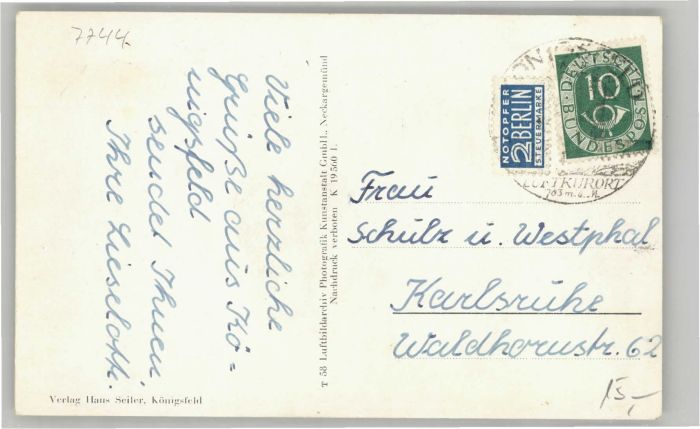 7744.
Viele herzliche
Grüße aus Kö-
nigsfeld
sendet Ihnen
Ihre Lieselotte.
Verlag Hans Seiler, Königsfeld
T 58 Luftbildarchiv Photografik Kunstanstalt GmbH., Neckargemünd
Nachdruck verboten K 19560 I.
NOTOPFER
2 BERLIN
STEUERMARKE
DEUTSCHE
10
BUNDESPOST
LUFTKURORT
763 m ü. M.
Frau
Schulz u. Westphal
Karlsruhe
Waldhornstr. 62
15,-